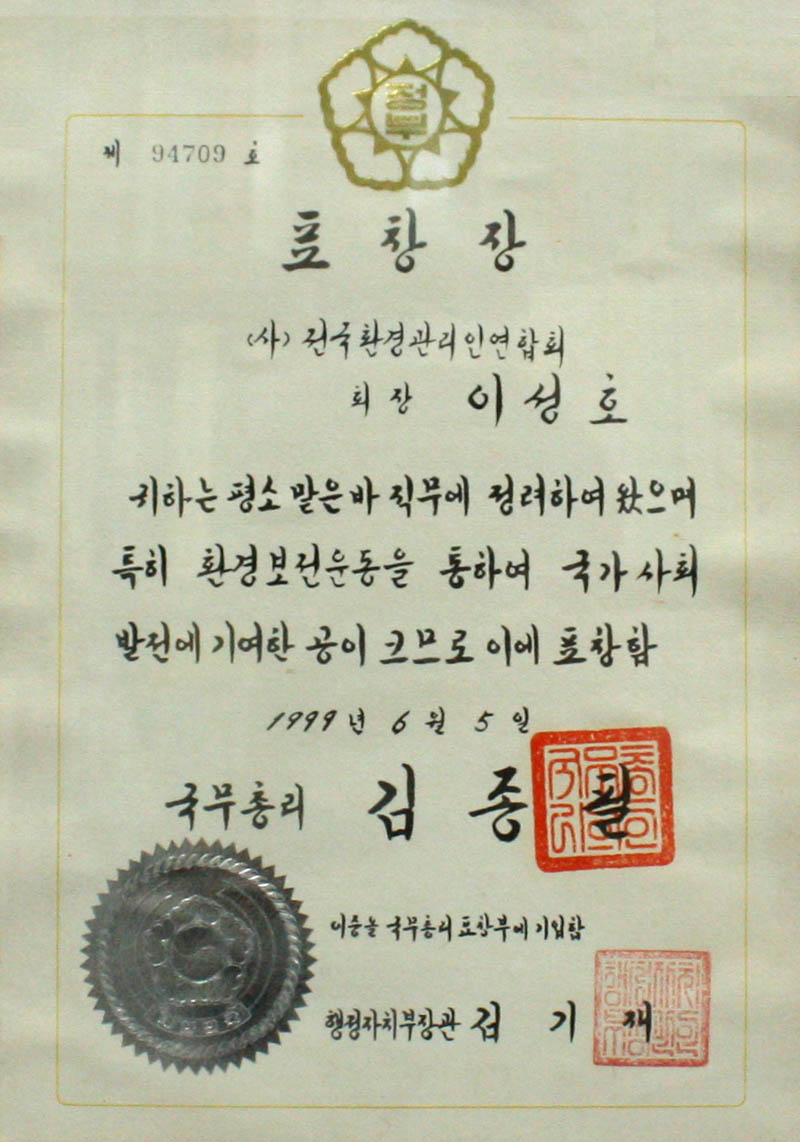 정부
제 94709 호
표창장
(사) 전국환경관리인연합회
회장 이성호
귀하는 평소 맡은바 직무에 정려하여 왔으며
특히 환경보전운동을 통하여 국가사회
발전에 기여한 공이 크므로 이에 표창함
1999년 6월 5일
국무총리 김종필
이증을 국무총리표창부에 기입함
행정자치부장관 김기재